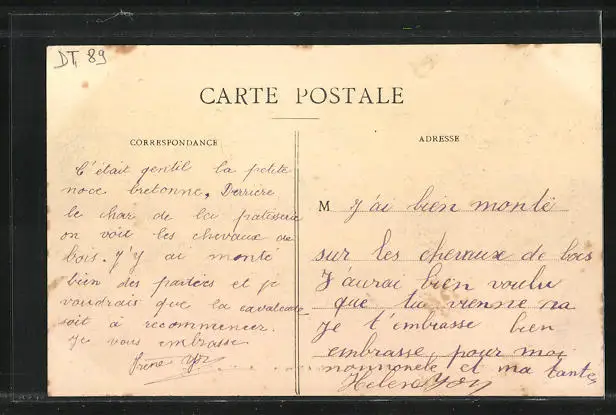 DT. 89
CARTE POSTALE
CORRESPONDANCE
C'était gentil la petite
noce bretonne. Derriere
le char de la patisserie
on voit les chevaux de
bois. J'y ai monté
bien des parties et je
voudrais que la cavalcade
soit à recommencer.
Je vous embrasse
Irène
ADRESSE
M J'ai bien monté
sur les chevaux de bois
J'aurai bien voulu
que tu vienne
Je t'embrasse bien
embrasse pour moi
nonnonele et ma tante
Helene